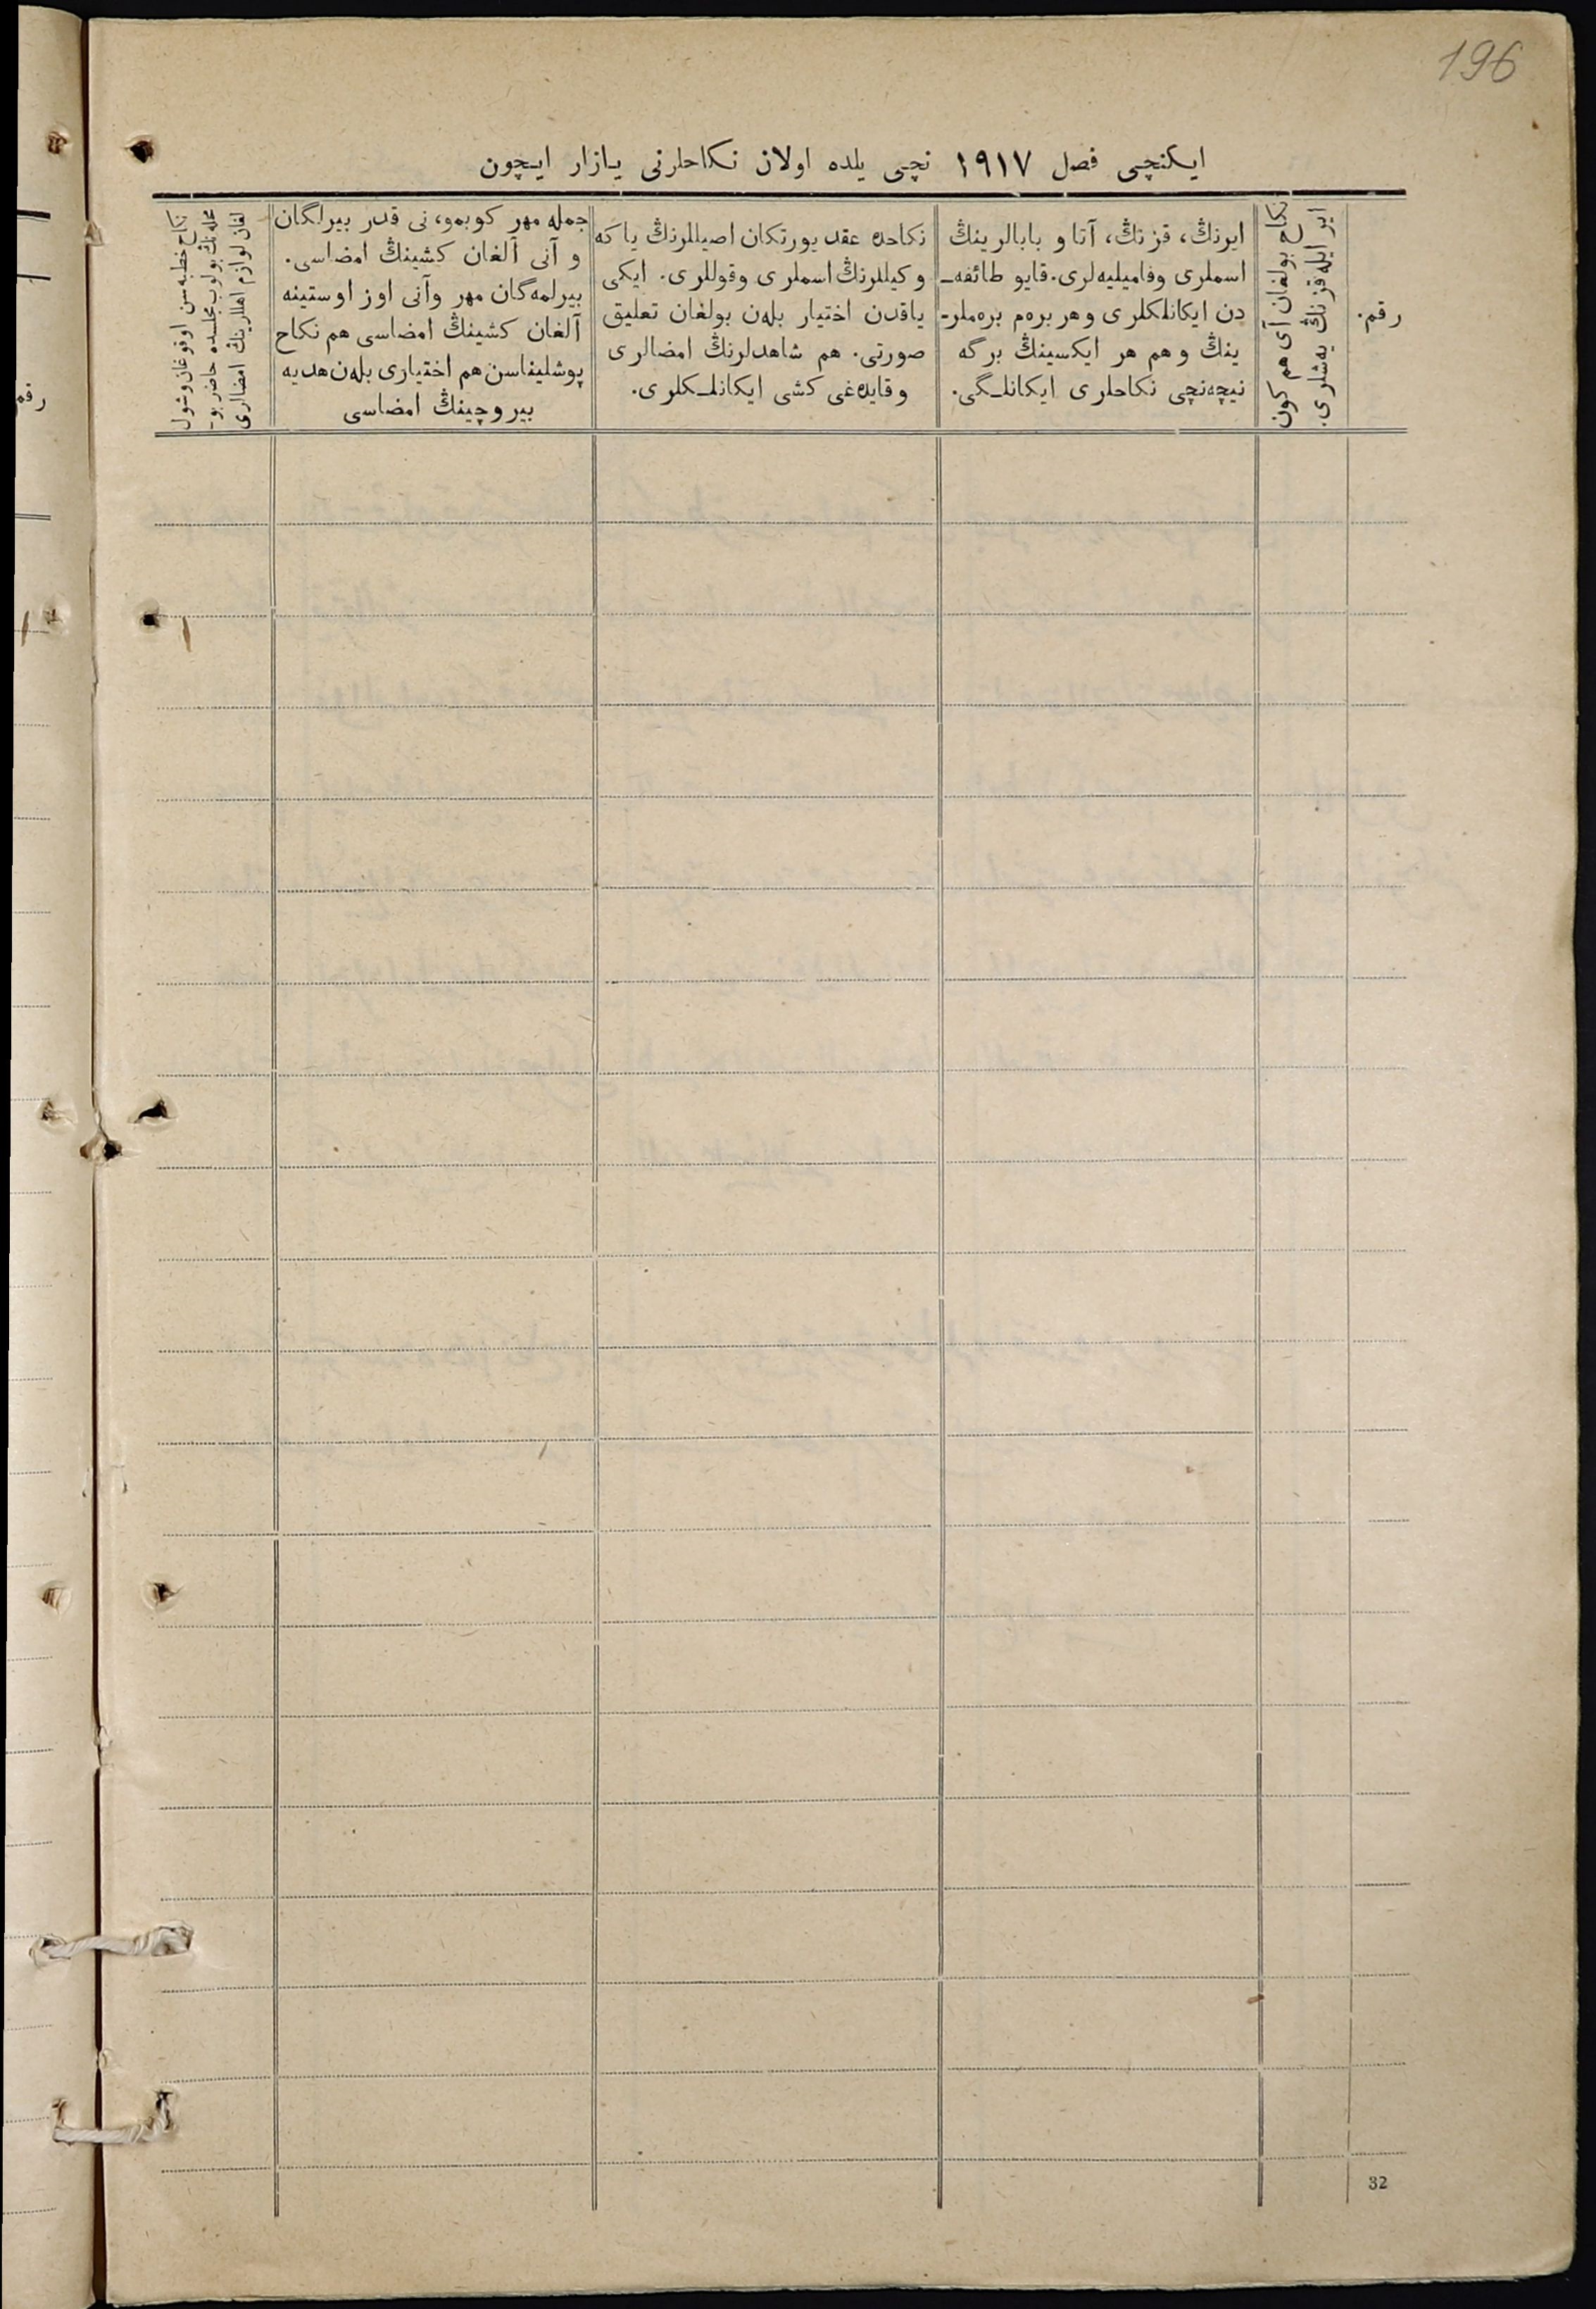 196
ایکنچی فصل ۱۹۱۷ نچی یلده اولان نکاحلرنی یازار ایچون
رقم.
ایر ایله قزنڭ یه‌شلری.
نکاح بولغان آی هم کون
ایرنڭ، قزنڭ، آتا و بابالرینڭ
اسملری وفامیلیه‌لری. قایو طائفه‌ـ
دن ایکانلکلری و هر بره‌م بره‌ملر-
ینڭ و هم هر ایکسینڭ برگه
نیچه‌نچی نکاحلری ایکانلـگی.
نکاحده عقد یورتکان اصیللرنڭ یا که
وکیللرنڭ اسملری وقوللری. ایکی
یاقدن اختیار بله‌ن بولغان تعلیق
صورتی. هم شاهدلرنڭ امضالری
وقایده‌غی کشی ایکانلـکلری.
جمله مهر کوبمو، نی قدر بیرلگان
و آنی آلغان کشینڭ امضاسی.
بیرلمه‌گان مهر وآنی اوز اوستینه
آلغان کشینڭ امضاسی هم نکاح
پوشلیناسن هم اختیاری بله‌ن هدیه
بیروچینڭ امضاسی
نکاح خطبه‌سن اوقوغان وشول
محله‌نڭ بولوب مجلسده حاضر بو-
لغان لوازم اهللرینڭ امضالری
رقم
32